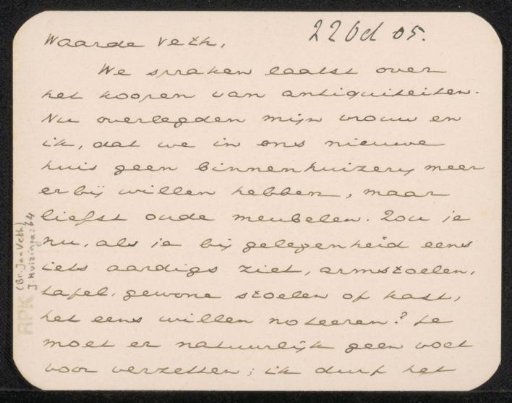 22 Oct 05.
Waarde Veth,
We spraken laatst over
het koopen van antiquiteiten.
Nu overlegden mijn vrouw en
ik, dat we in ons nieuwe
huis geen Binnenhuizerij meer
erbij willen hebben, maar
liefst oude meubelen. Zou je
nu, als je bij gelegenheid eens
iets aardigs ziet, armstoelen,
tafel, gewone stoelen of kast,
het eens willen noteeren? Je
moet er natuurlijk geen voet
voor verzetten; ik durf het
(Br. Jan Veth)
J Huizinga: 64
RPK